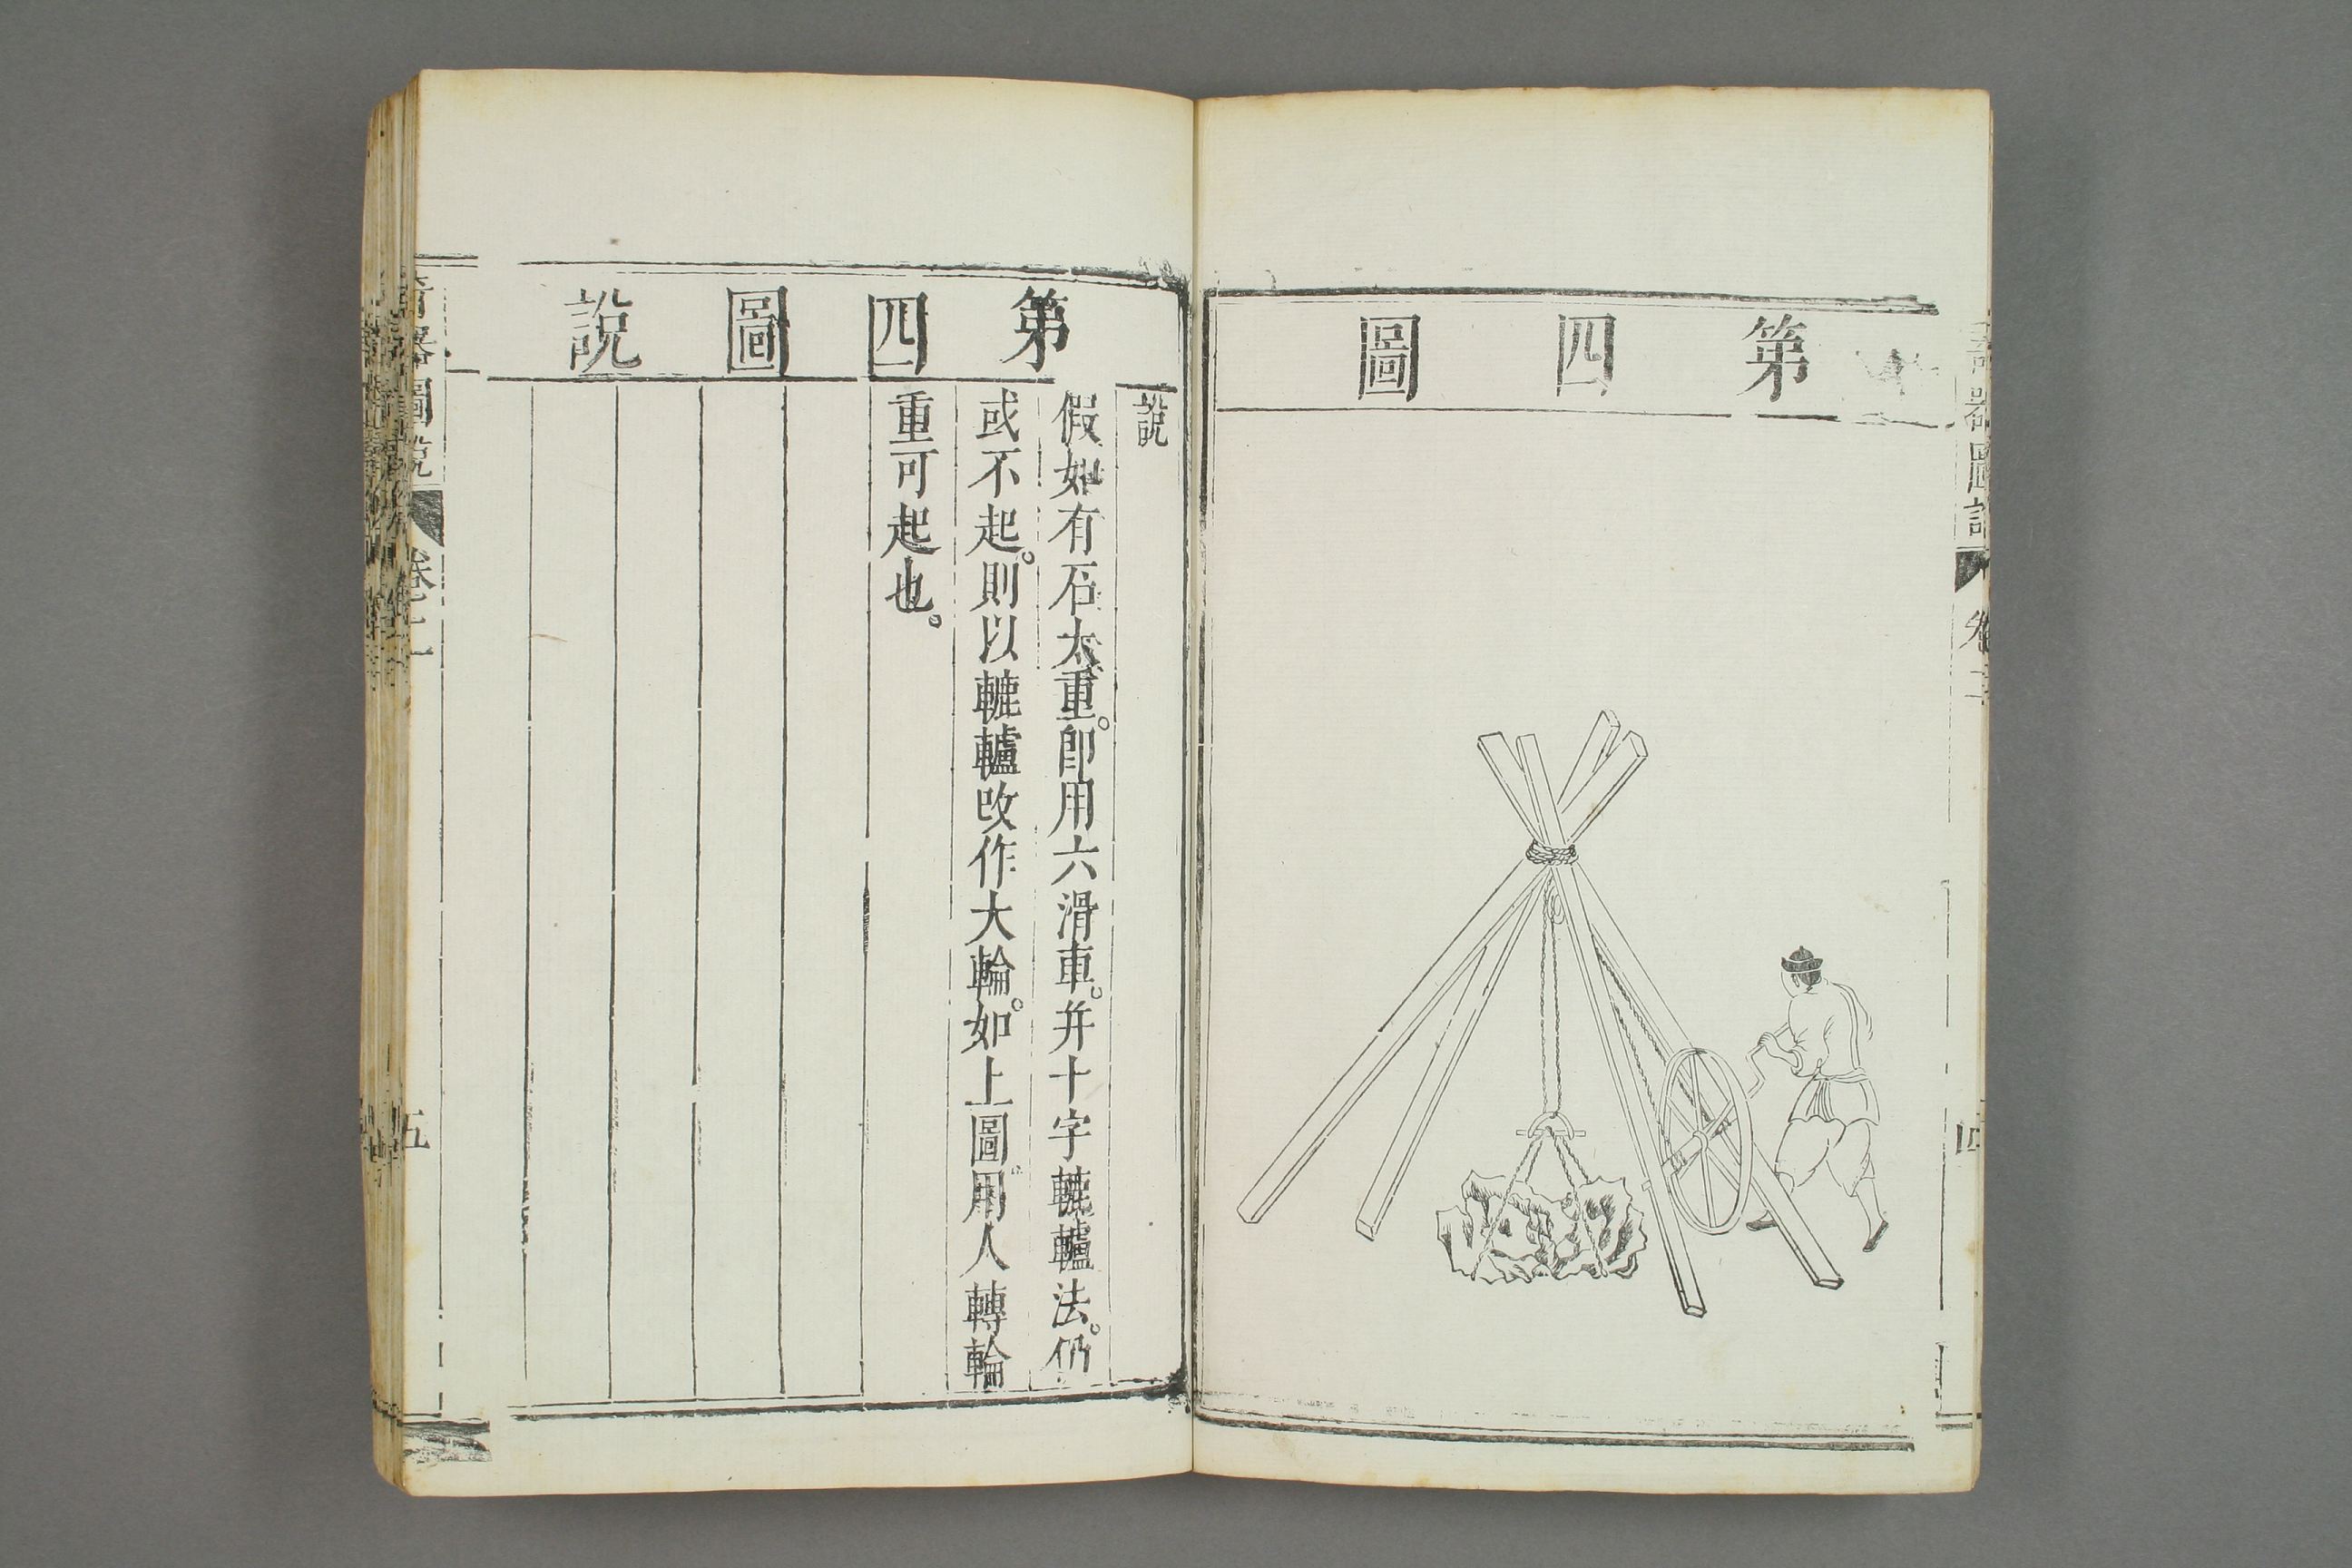 第四圖
第四圖說
說
假如有石太重。卽用六滑車。幷十字轆轤法。仍
或不起。則以轆轤改作大輪。如上圖。用人轉輪
重可起也。
圖說
卷
五